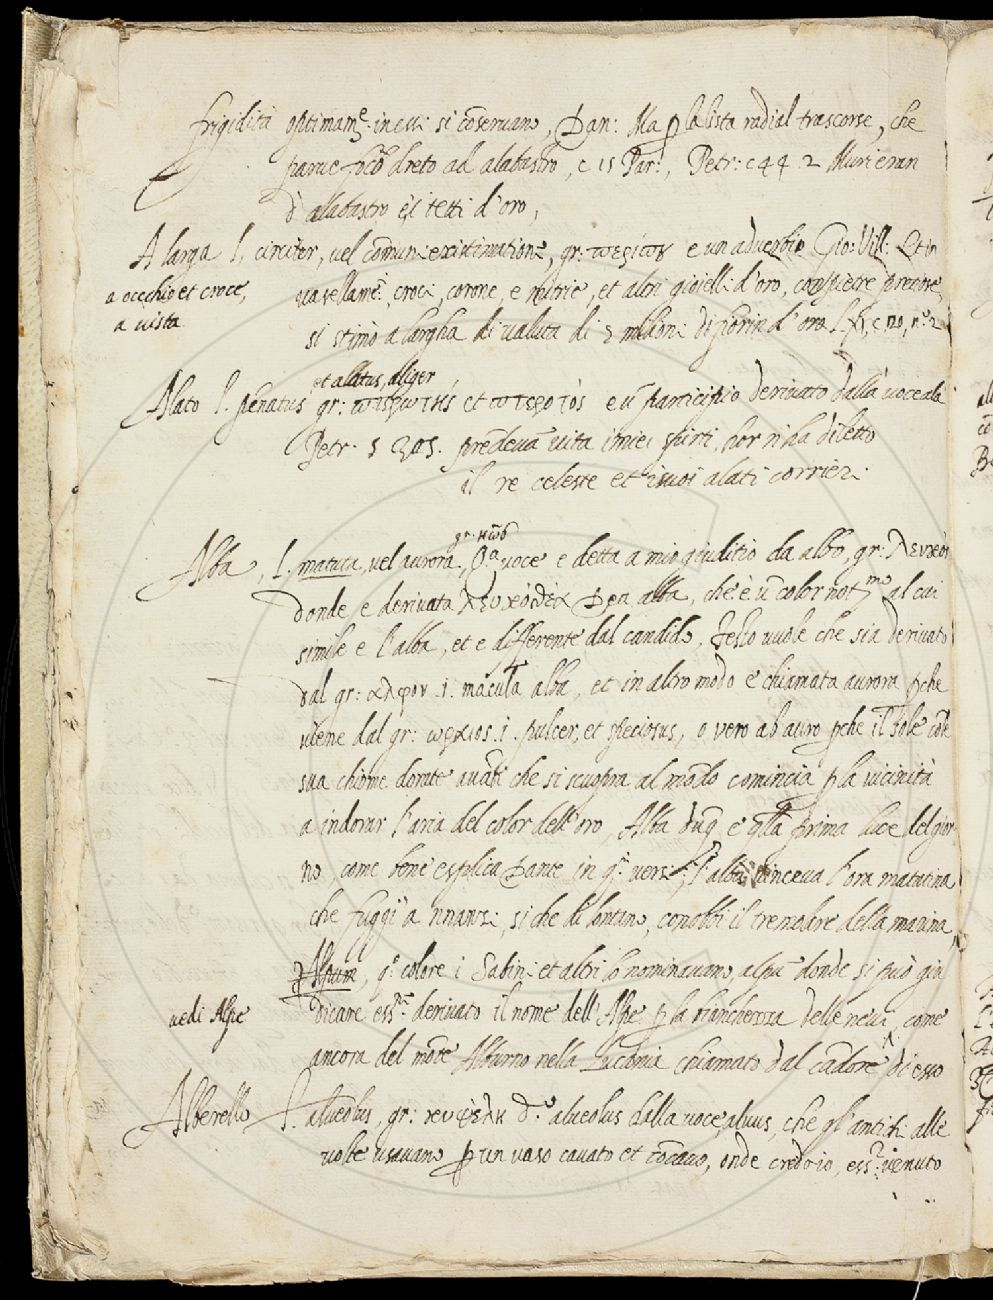 frigidità optimamᵉ. in essi si cōseruano, Dan: Ma p la lista radial trascorse, che
parue foco dreto ad alabastro, c 15 Par:, Petr: c 44. 2 Muri eran
d'alabastro è i tetti d'oro,
A larga l. circiter, vel comuni existimatione, gr: e un aduerbio Gio: Vill:
a occhio et croce,
a uista
quasellamē: croci, corone, e mitrie, et altri gioielli d'oro, con pietre pretiose
si stimò a largha di valuta di 2 milioni di fiorin d'oro
et alatus, aliger
Alato l. pēnatus gr: et e ū participio deriuato dalla uoce ala
Petr. s 305. prēdeuā uita i miei spirti, hor n'ha diletto
il re celeste et i suoi alati corrieri:
Alba, l. matuta, vel aurora, uoce e detta a mio giuditio da albo, gr: λευκὸς
donde e deriuata Dea alba, che è ū color notᵐᵒ al cui
simile e l'alba, et e differente dal candido, uuole che sia deriuato
dal gr: αλφον .i. macula alba, et in altro modo e chiamata aurora pche
uiene dal gr: ωραιος .i. pulcer, et speciosus, o vero ab auro pche il sole cō le
sua chiome dorate auāti che si scuopra al mōdo comincia p la uicinità
a indorar l'aria del color dell'oro, Alba dūq e qlla prima luce del gior
no, come bene esplica Dante in q.i versi, l'alba uinceua l'ora matutina
che fuggi'a nnanzi: si che di lontano, conobbi il tremolare della marina,
Alpum, q.o colore i Sabini et altri lo nominauano, alpū donde si può giu
uedi Alpe
dicare essʳ. deriuato il nome dell'Alpe p la bianchezza delle neui, come
ancora del mōte Alburno nella Lucania chiamato dal cādore di esso
Alberello l. alueolus, gr: dᵒ alueolus dalla uoce, aluus, che gl'antichi alle
uolte usauano p un uaso cauato et cōcauo, onde credo io, essʳ: uenuto